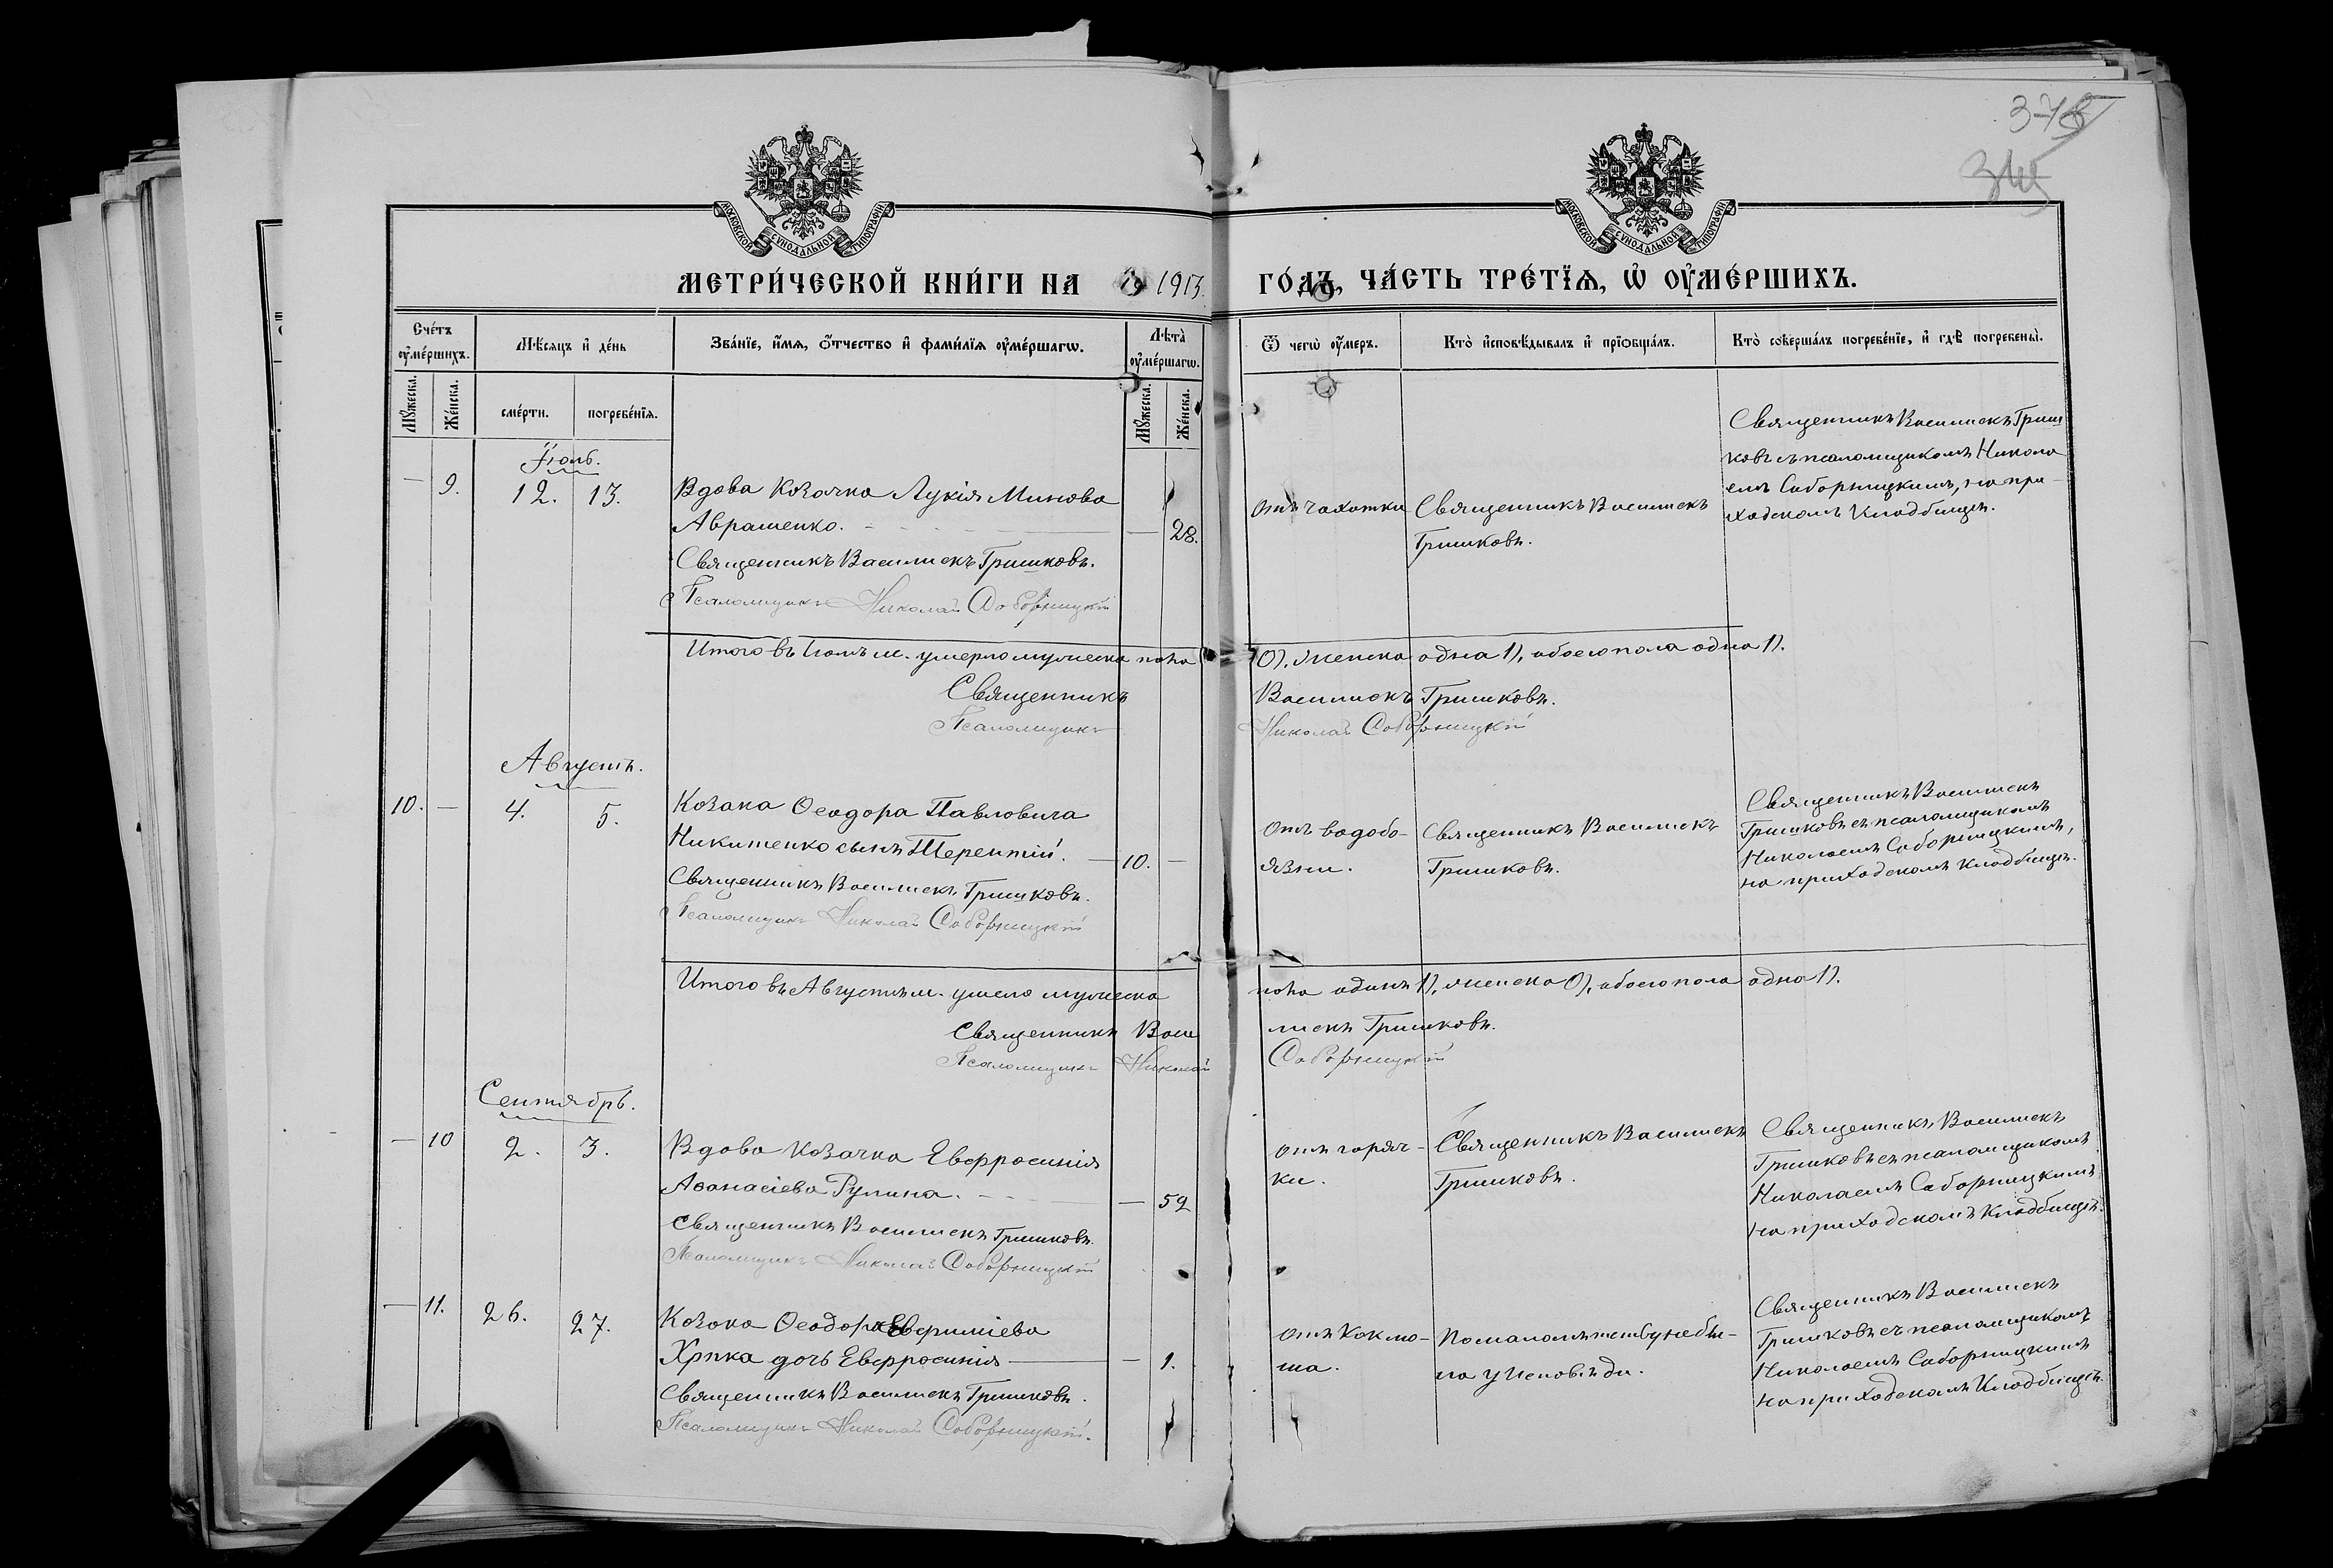 375
345
МОСКОВСКОЙ СѴНОДАЛЬНОЙ ТИПОГРАФІИ
МОСКОВСКОЙ СѴНОДАЛЬНОЙ ТИПОГРАФІИ
МЕТРИ́ЧЕСКОЙ КНИ́ГИ НА 19 1913. ГО́ДЪ, ЧА́СТЬ ТРЕ́ТЇѦ, Ѡ҆ ОУ҆МЕ́РШИХЪ.
Сче́тъ оу҆ме́ршихъ.
Мѣ́сяцъ и҆ де́нь
Зва́нїе, и҆́мѧ, ѻ҆́тчество и҆ фами́лїѧ оу҆ме́ршагѡ.
Лѣ́та оу҆ме́ршагѡ.
Ѿ чегѡ̀ оу҆́меръ.
Кто̀ и҆сповѣ́дывалъ и҆ прїѡбща́лъ.
Кто̀ соверша́лъ погребе́нїе, и҆ гдѣ̀ погребены̀.
Мꙋ́жеска.
Же́нска.
сме́рти.
погребе́нїѧ.
Мꙋ́жеска.
Же́нска.
Іюль.
— 9. 12. 13.
Вдова козачка Лукія Минова
Аврашенко. — 28.
Священникъ Василискъ Гришковъ.
Псаломщикъ Николай Соборницкій
отъ чахотки
Священникъ Василискъ
Гришковъ.
Священникъ Василискъ Гриш
ковъ съ псаломщикомъ Никола
емъ Соборницкимъ, на при-
ходскомъ кладбищѣ.
Итого въ Іюлѣ м. умерло мужеска пола 0), женска одна 1), обоего пола одна 1).
Священникъ Василискъ Гришковъ.
Псаломщикъ Николай Соборницкій
Августъ.
10. — 4. 5.
Козака Ѳеодора Павловича
Никитенко сынъ Терентій. — 10. —
Священникъ Василискъ Гришковъ.
Псаломщикъ Николай Соборницкій
Отъ водобо-
язни.
Священникъ Василискъ
Гришковъ.
Священникъ Василискъ
Гришковъ съ псаломщикомъ
Николаемъ Соборницкимъ,
на приходскомъ кладбищѣ.
Итого въ Августѣ м. умело мужеска пола одинъ 1), женска 0), обоего пола одно 1).
Священникъ Васи лискъ Гришковъ.
Псаломщикъ Николай Соборницкій
Сентябрь.
— 10 2. 3.
Вдова козачка Евфросинія
Аѳанасіева — 59
Священникъ Василискъ Гришковъ.
Псаломщикъ Николай Соборницкій
отъ горяч-
ки.
Священникъ Василискъ
Гришковъ.
Священникъ Василискъ
Гришковъ съ псаломщикомъ
Николаемъ Соборницкимъ
на приходскомъ кладбищѣ.
— 11. 26. 27.
Козака Ѳеодора Евфиміева
дочь Евфросинія — 1.
Священникъ Василискъ Гришковъ.
Псаломщикъ Николай Соборницкій.
Отъ коклю-
ша.
По малолѣтству не бы-
ла у исповѣди.
Священникъ Василискъ
Гришковъ съ псаломщикомъ
Николаемъ Соборницкимъ
на приходскомъ кладбищѣ.